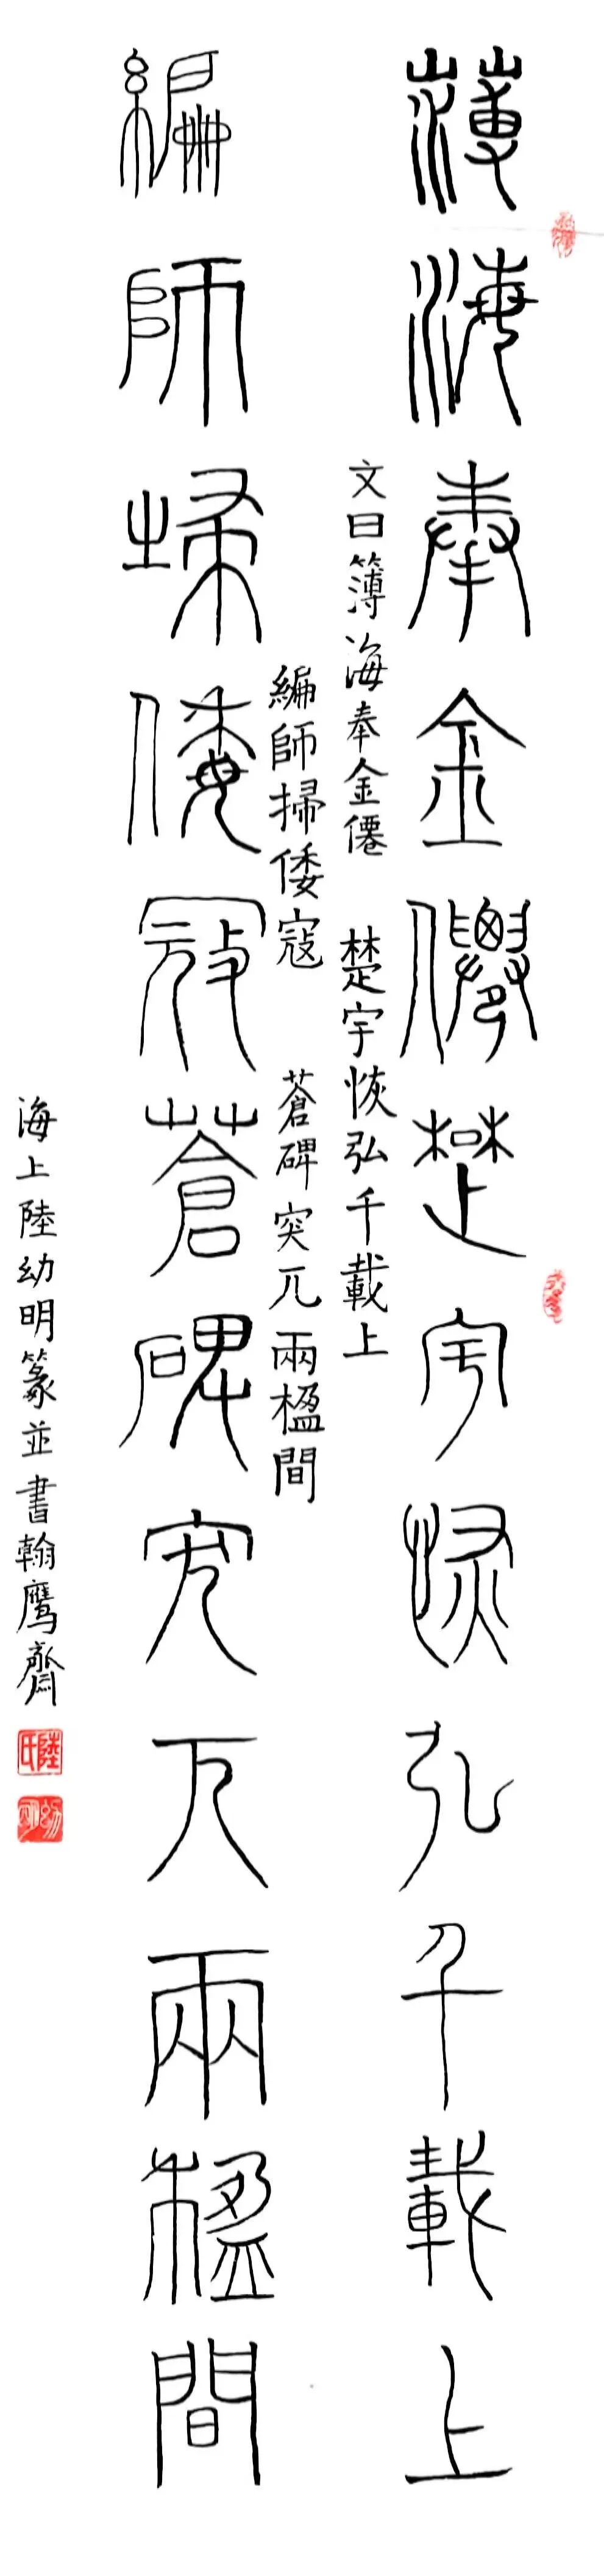 薄海奉金僊楚宇恢弘千載上
文曰簿海奉金僊 楚宇恢弘千載上
編師掃倭寇 蒼碑突兀兩楹間
編師埽倭寇蒼碑突兀兩楹間
海上陸幼明篆並書翰鷹齊
陸氏
幼明